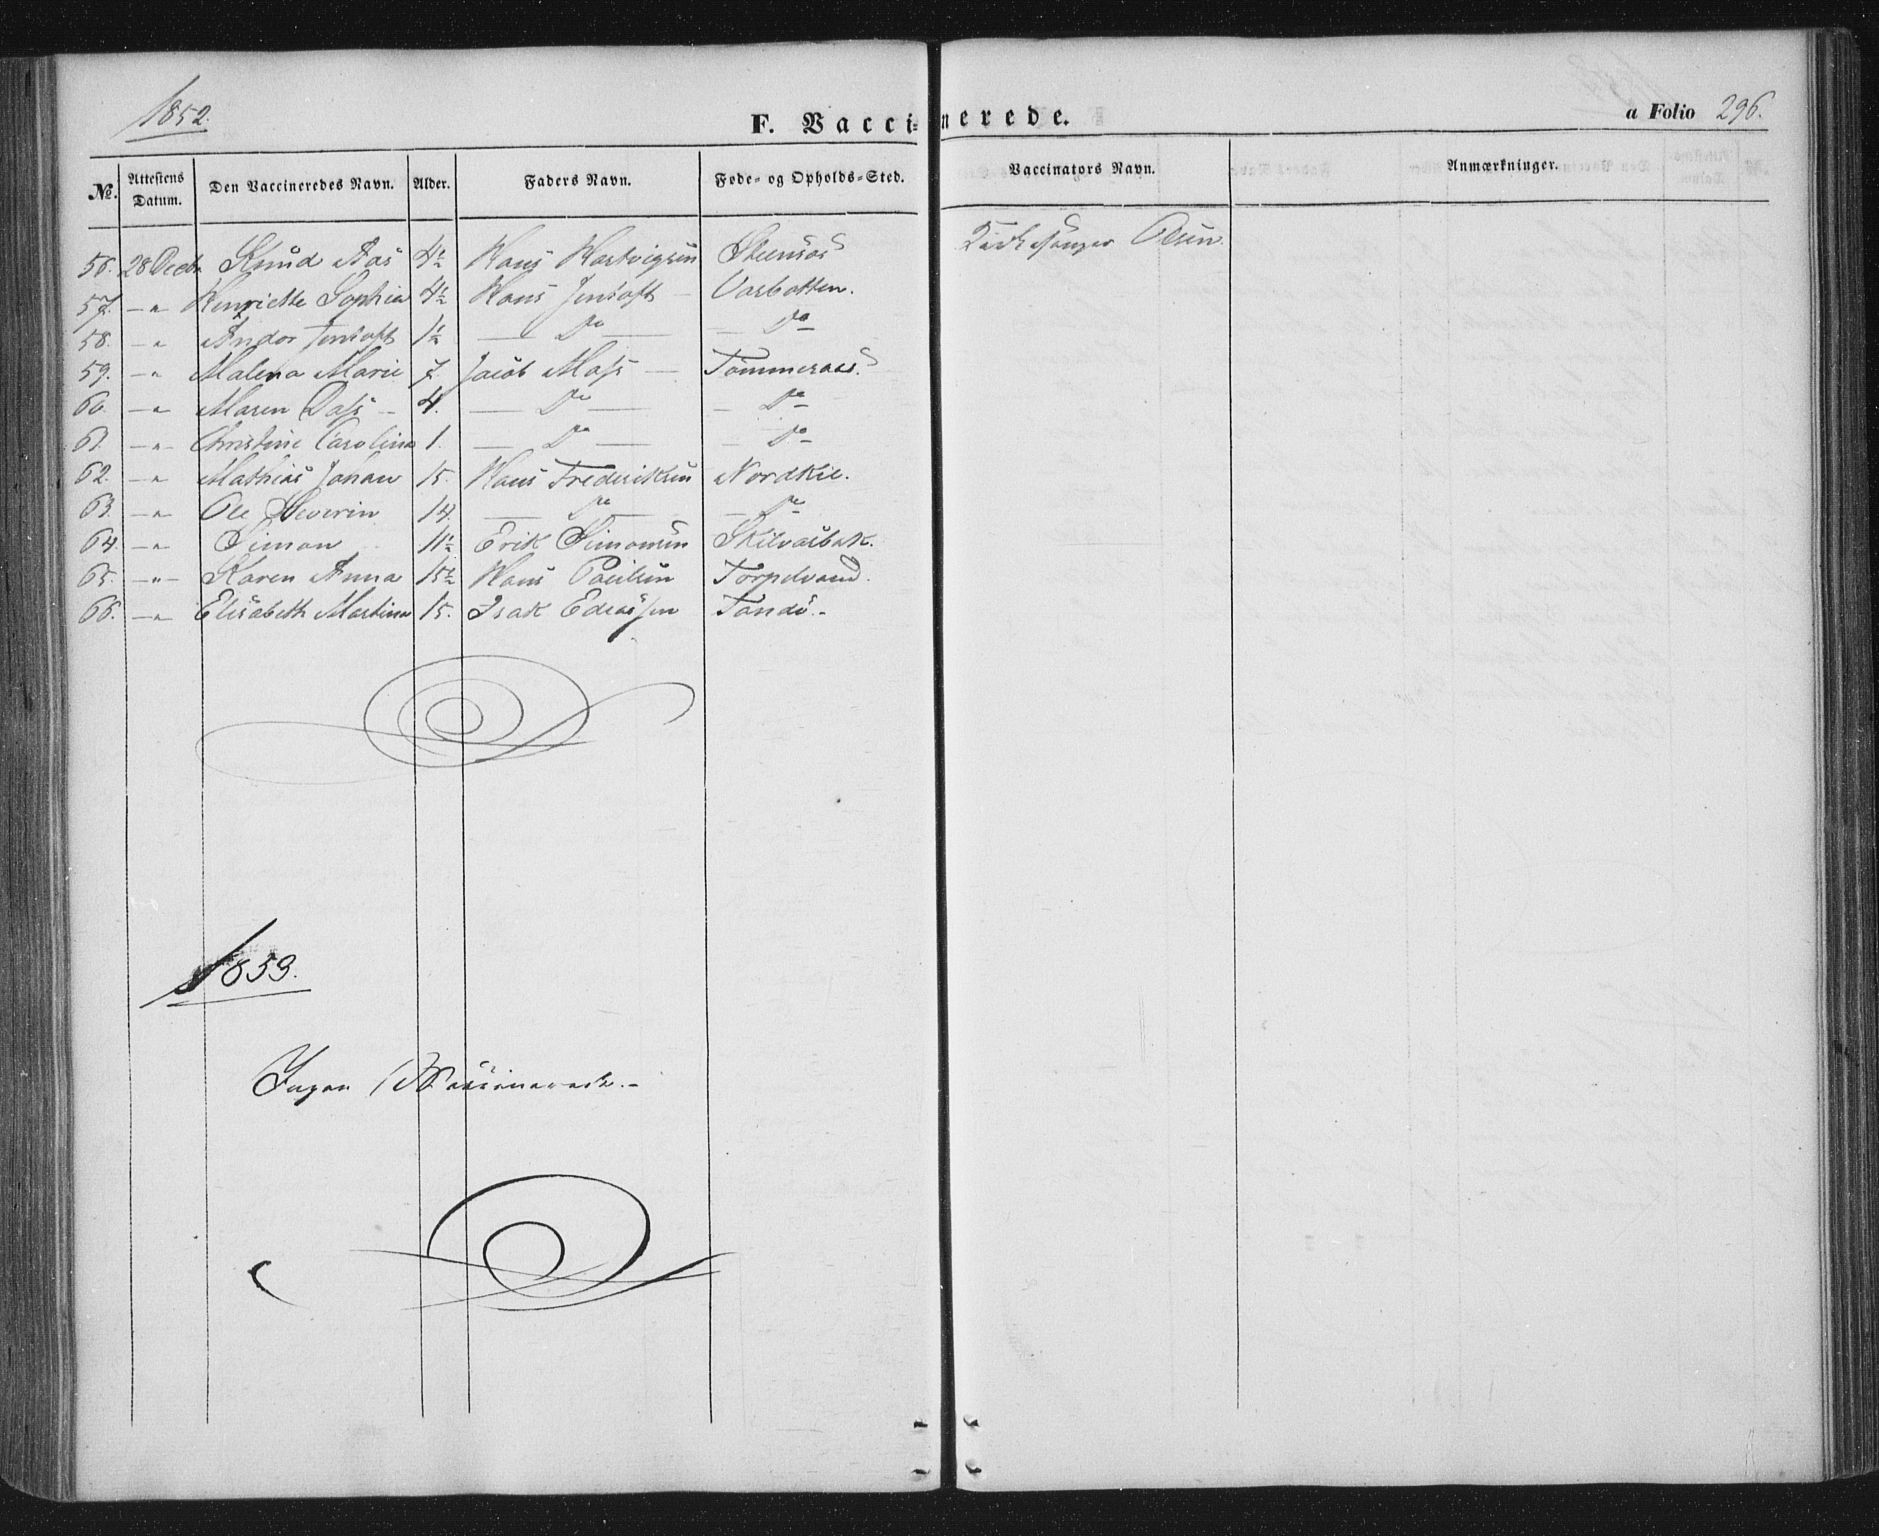 1852.
F. Vaccinerede.
a Folio 296.
No. Attestens Datum. Den Vaccineredes Navn. Alder. Faders Navn. Føde- og Opholds-Sted. Vaccinators Navn. Anmærkninger.
56. 28 Decbr Knud Aas 4½ Hans Hartvigsen Steensøs Kirkesanger Olsen
57. —"— Henriette Sophia 4½ Hans Jentoft — Varbotten.
58. —"— Andor Jentoft 1½ — Do — — Do —
59. —"— Malena Marie 7. Jacob Mass — Tømmeraas.
60. —"— Maren Dass — 4. — Do — — Do —
61. —"— Christine Carolina 1. — Do — — Do —
62. —"— Mathias Johan 15. Hans Frederiksen Nordkil.
63. —"— Ole Severin 14. — Do — — Do —
64. —"— Simon 11½ Erik Simonsen Skilvasbak.
65. —"— Karen Anna 15½ Hans Paulsen Torpelvand.
66. —"— Elisabeth Martina 15. Isak Edeassen Tande.
1853.
Ingen Vaccinerede.